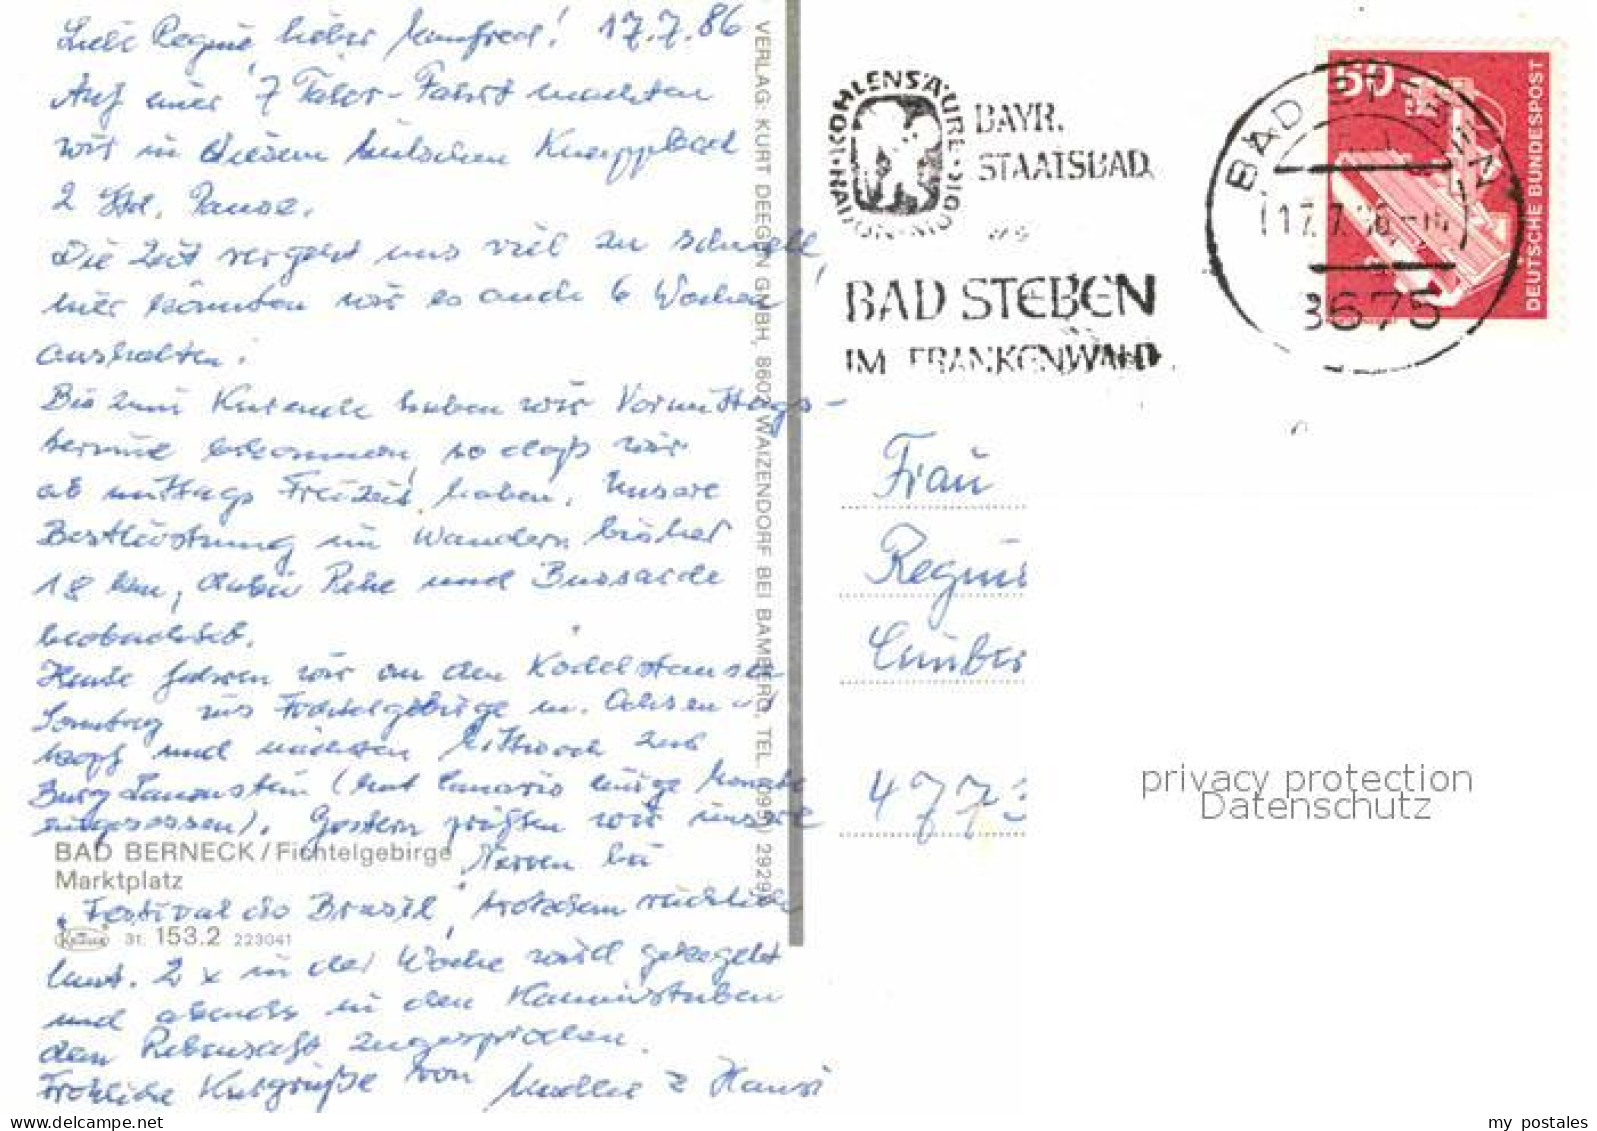 Liebe Regine, lieber Manfred! 17.7.86
Auf einer 7 Täler-Fahrt machten
wir in diesem hübschen Kneippbad
2 Std. Pause.
Die Zeit vergeht uns viel zu schnell,
hier könnten wir es auch 6 Wochen
aushalten.
Bis zum Kurende haben wir Vormittags-
termine bekommen, so daß wir
ab mittags Freizeit haben. Unsere
Bestleistung im Wandern bisher
18 km, dabei Rehe und Bussarde
beobachtet.
Heute fahren wir an den
Sonntag ins Fichtelgebirge m. Ochsen-
kopf und nächsten Mittwoch zur
Burg Lauenstein (hat einige Monate
eingesessen). Gestern prüften wir unsere
Nerven bei
"Festival do Brasil", trotzdem
laut. 2 x in der Woche wird gekegelt
und abends in den Kaminstuben
dem Rebensaft zugesprochen.
Fröhliche Kurgrüße von & Hansi
BAD BERNECK/Fichtelgebirge
Marktplatz
Krüger 31. 153.2 223041
VERLAG KURT DEEGEN GMBH, 8602 WAIZENDORF BEI BAMBERG, TEL. (0951) 2929
KOHLENSÄURE · RADON · MOOR
BAYR.
STAATSBAD
BAD STEBEN
IM FRANKENWALD
BAD STEBEN
17.7.86
8675
50
DEUTSCHE BUNDESPOST
Frau
Regine
477
privacy protection
Datenschutz
www.delcampe.net
my_postales